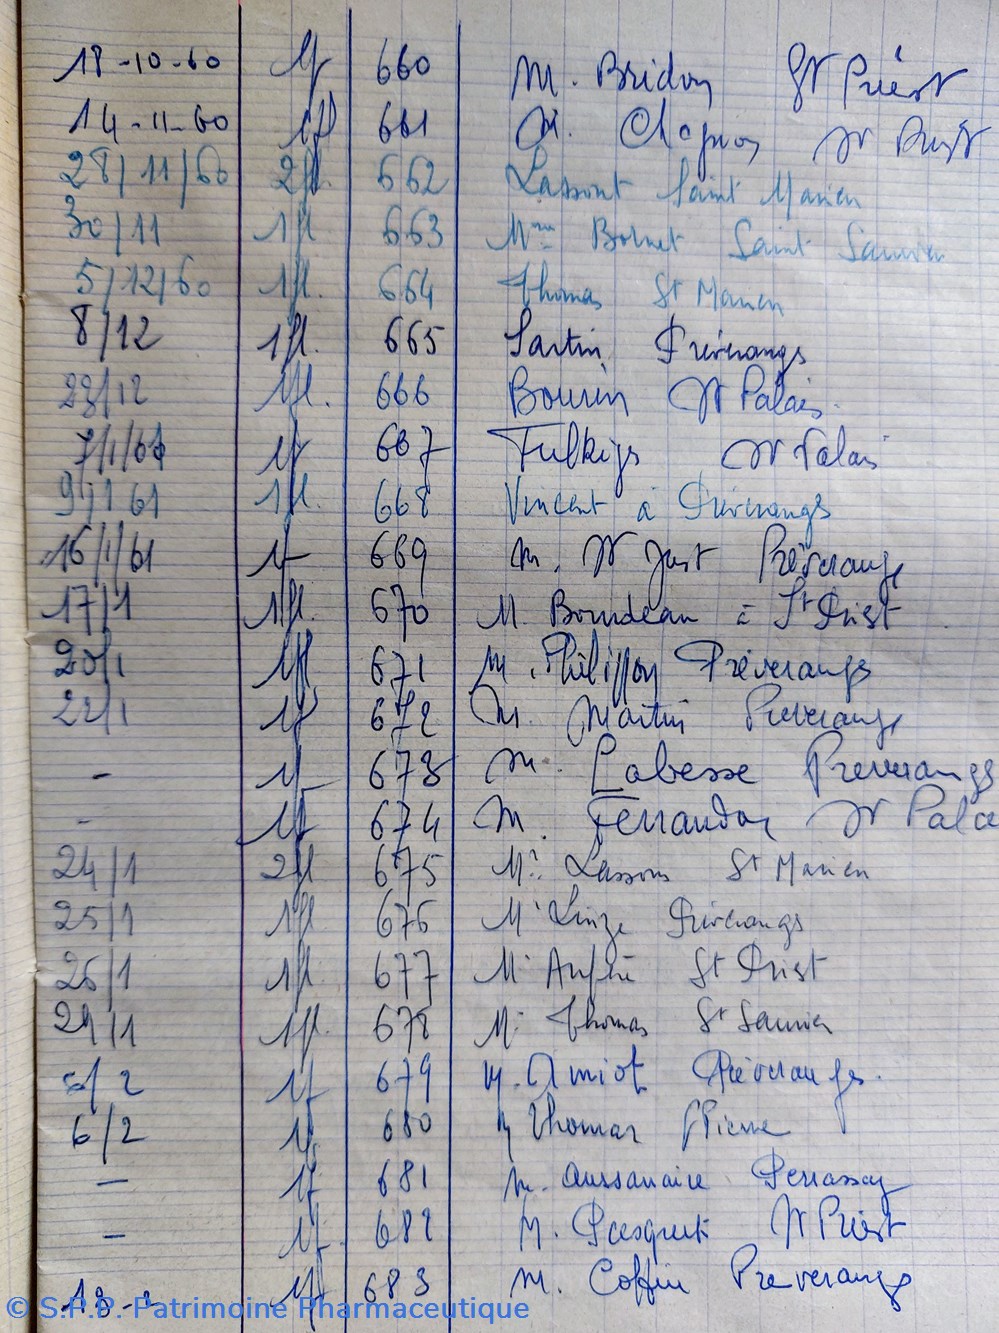 18-10-60 1f 660 M. Bridon St Priest
14-11-60 1fl 661 M. Chagnon St Priest
28/11/60 2fl. 662 Lassout Saint Marien
30/11 1fl. 663 Mme Bonnet Saint Saunier
5/12/60 1fl. 664 Thomas St Marien
8/12 1fl. 665 Sartin Préveranges
23/12 1fl. 666 Bourin St Palais.
7/1/61 1f 667 St Palais
9/1 61 1fl. 668 Vincent à Préveranges
16/1/61 1f 669 M. St Just Préverange
17/1 1fl. 670 M. Bourdeau à St Priest
20/1 1fl 671 M. Philippon Préveranges
22/1 1f 672 M. Martin Préverange
- 1f 673 M. Labesse Preveranges
- 1f 674 M. Ferrandon St Pala
24/1 2fl 675 Mr. Lassous St Marien
25/1 1fl 676 Mr Linze Préveranges
26/1 1fl. 677 Mr St Priest
1fl. 678 Mr Thomas St Saunier
5/2 1f 679 M. Amiot Préveranges.
6/2 1f 680 M Thomas
— 1f 681 M. Aussanaire Perassay
— 1f. 682 M. St Priest
1f 683 M. Coffin Preveranges
© S.P.P. Patrimoine Pharmaceutique